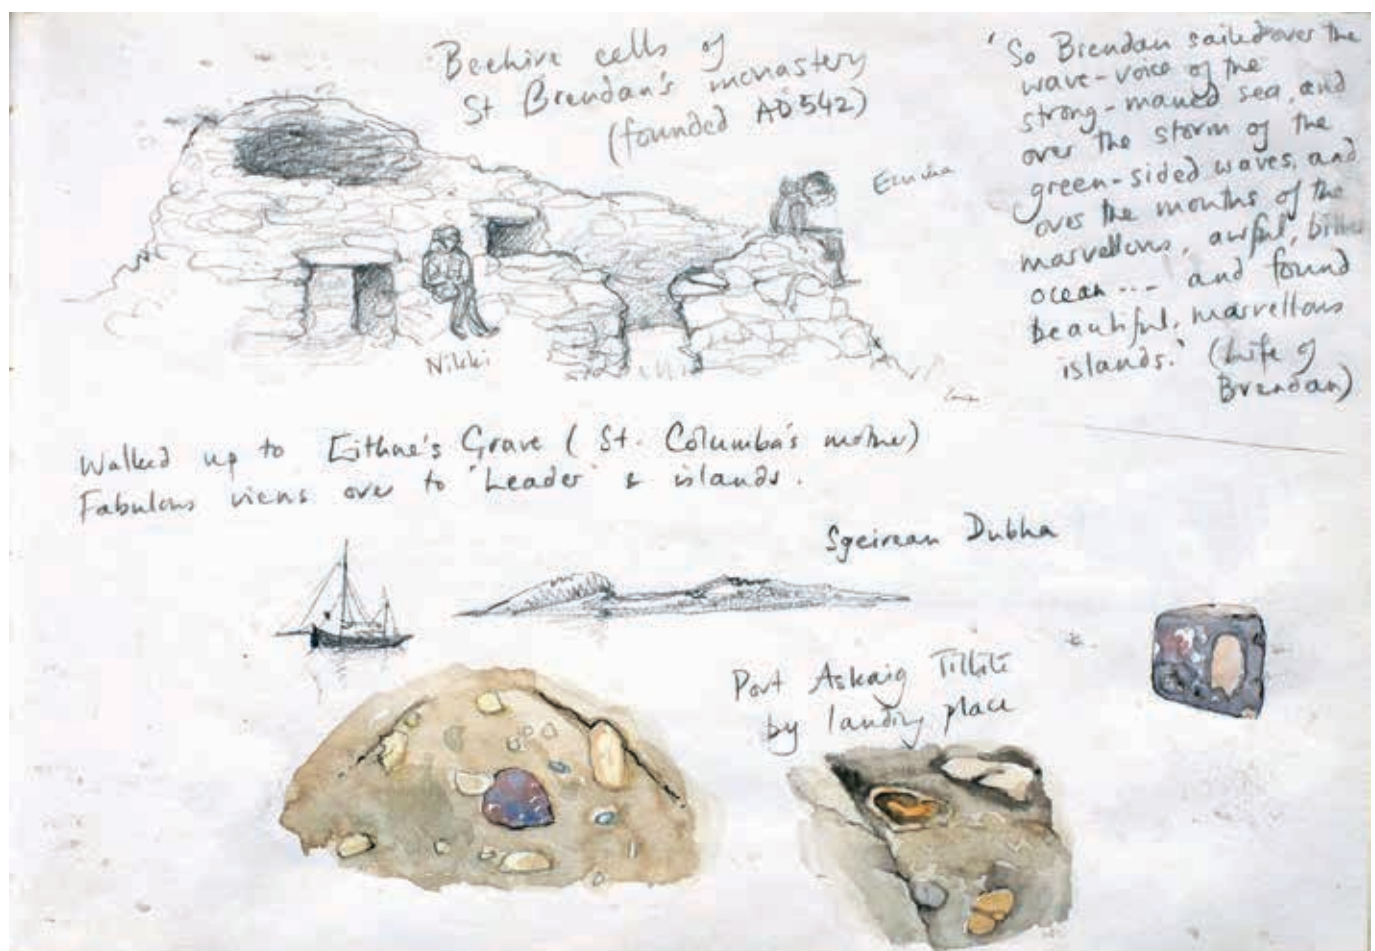 Beehive cells of
St Brendan's monastery
(founded AD 542)
'So Brendan sailed over the
wave-voice of the
strong-maned sea, and
over the storm of the
green-sided waves, and
over the mouths of the
marvellous, awful, bitter
ocean --- and found
beautiful, marvellous
islands.' (Life of
Brendan)
Emma
Nikki
Walked up to Eithne's Grave (St. Columba's mother)
Fabulous views over to 'Leader' & islands.
Sgeirean Dubha
Port Askaig Tillite
by landing place